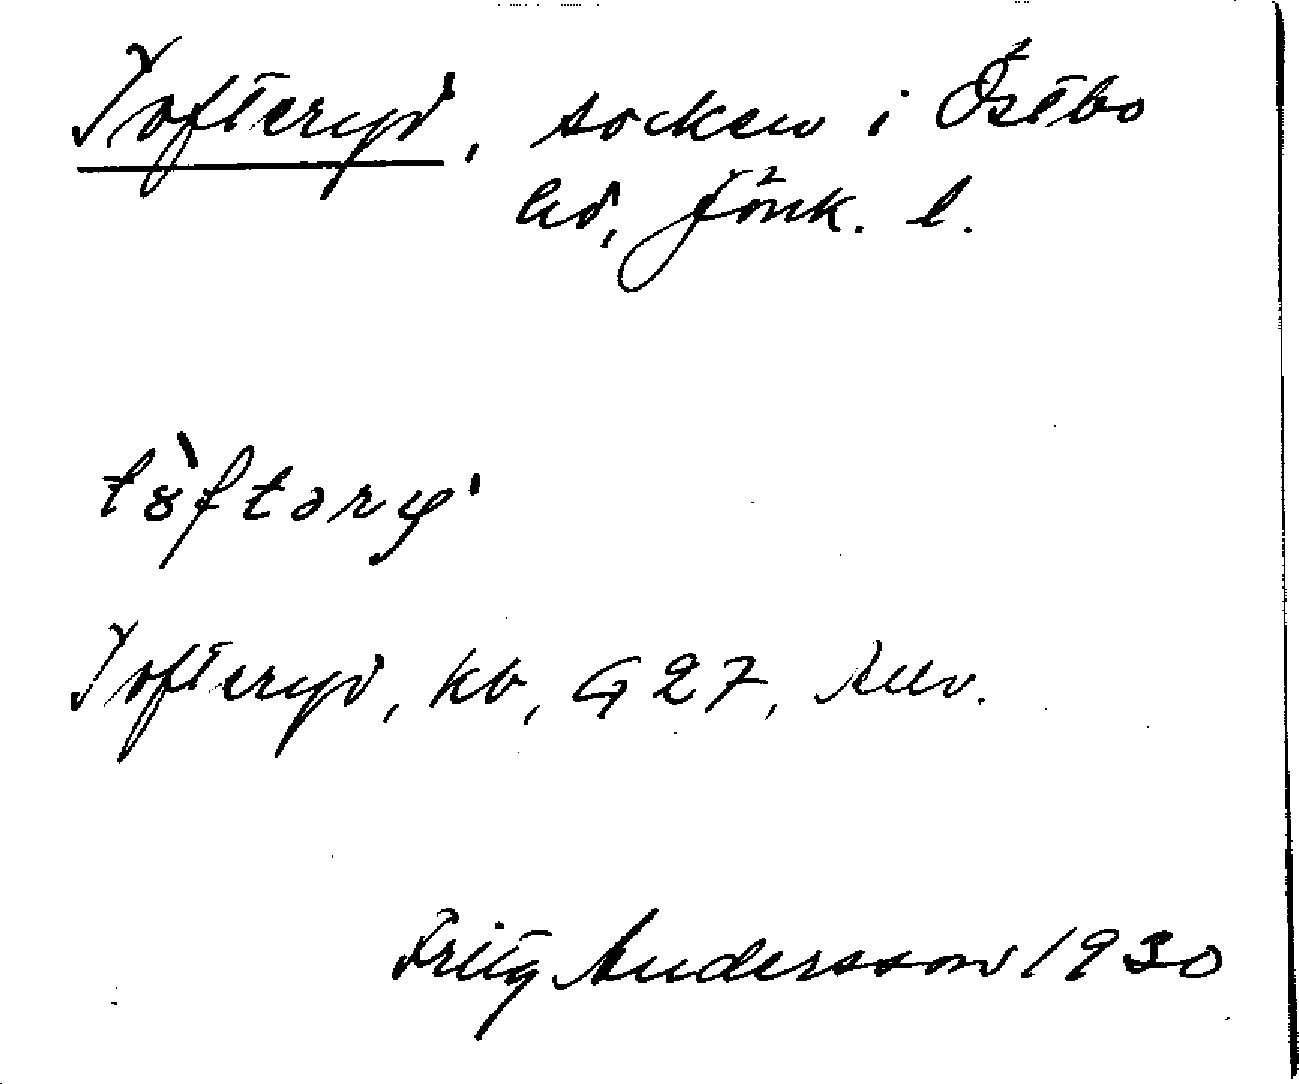 Tofteryd, socken i Östbo
hd, Jönk. l.
tȣ̀ftəry'
Tofteryd, kb, G 27, Allv.
Fritz Andersson 1930